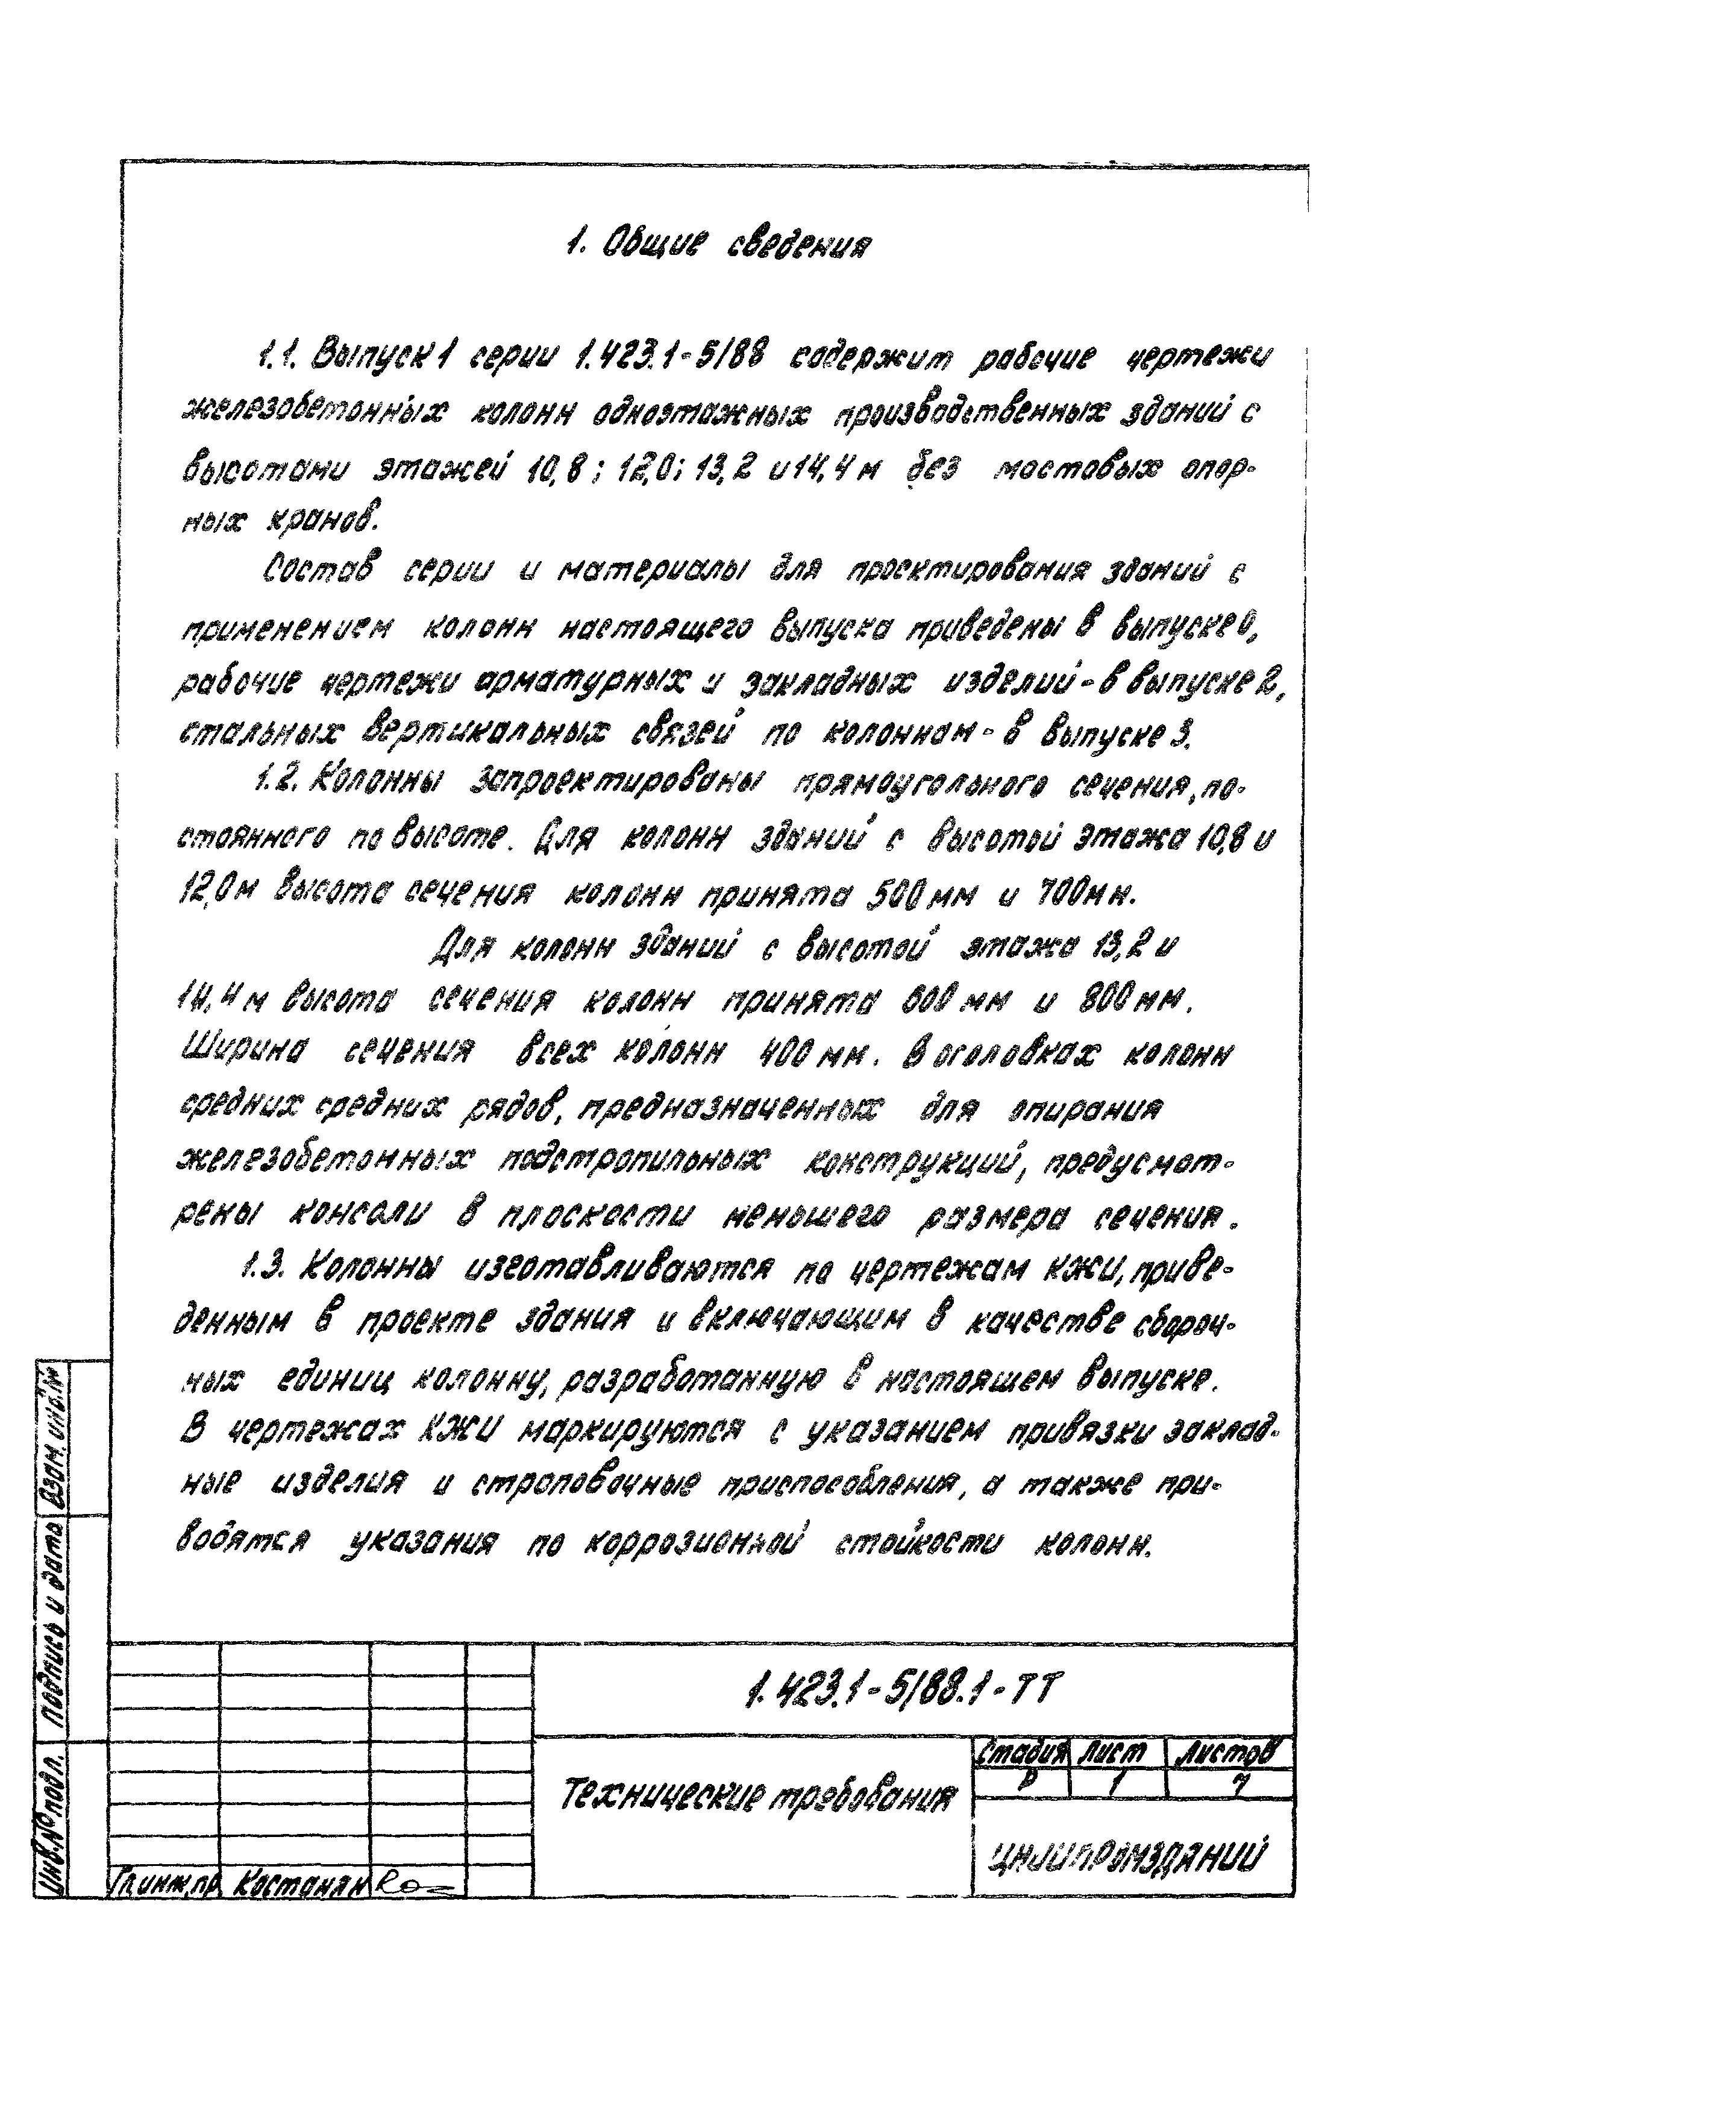 1. Общие сведения
1.1. Выпуск 1 серии 1.423.1-5/88 содержит рабочие чертежи
железобетонных колонн одноэтажных производственных зданий с
высотами этажей 10,8; 12,0; 13,2 и 14,4 м без мостовых опор-
ных кранов.
Состав серии и материалы для проектирования зданий с
применением колонн настоящего выпуска приведены в выпуске 0,
рабочие чертежи арматурных и закладных изделий - в выпуске 2,
стальных вертикальных связей по колоннам - в выпуске 3.
1.2. Колонны запроектированы прямоугольного сечения, по-
стоянного по высоте. Для колонн зданий с высотой этажа 10,8 и
12,0 м высота сечения колонн принята 500 мм и 700 мм.
Для колонн зданий с высотой этажа 13,2 и
14,4 м высота сечения колонн принята 600 мм и 800 мм.
Ширина сечения всех колонн 400 мм. В оголовках колонн
средних средних рядов, предназначенных для опирания
железобетонных подстропильных конструкций, предусмот-
рены консоли в плоскости меньшего размера сечения.
1.3. Колонны изготавливаются по чертежам КЖИ, приве-
денным в проекте здания и включающим в качестве сбороч-
ных единиц колонну, разработанную в настояшем выпуске.
В чертежах КЖИ маркируются с указанием привязки заклад-
ные изделия и строповочные приспособления, а также при-
водятся указания по коррозионной стойкости колонн.
Взам. инв. №
Подпись и дата
Инв. № подл.
1.423.1-5/88.1-ТТ
Технические требования
Стадия Лист Листов
Р 1 7
ЦНИИПРОМЗДАНИЙ
Гл. инж. пр. Костанян